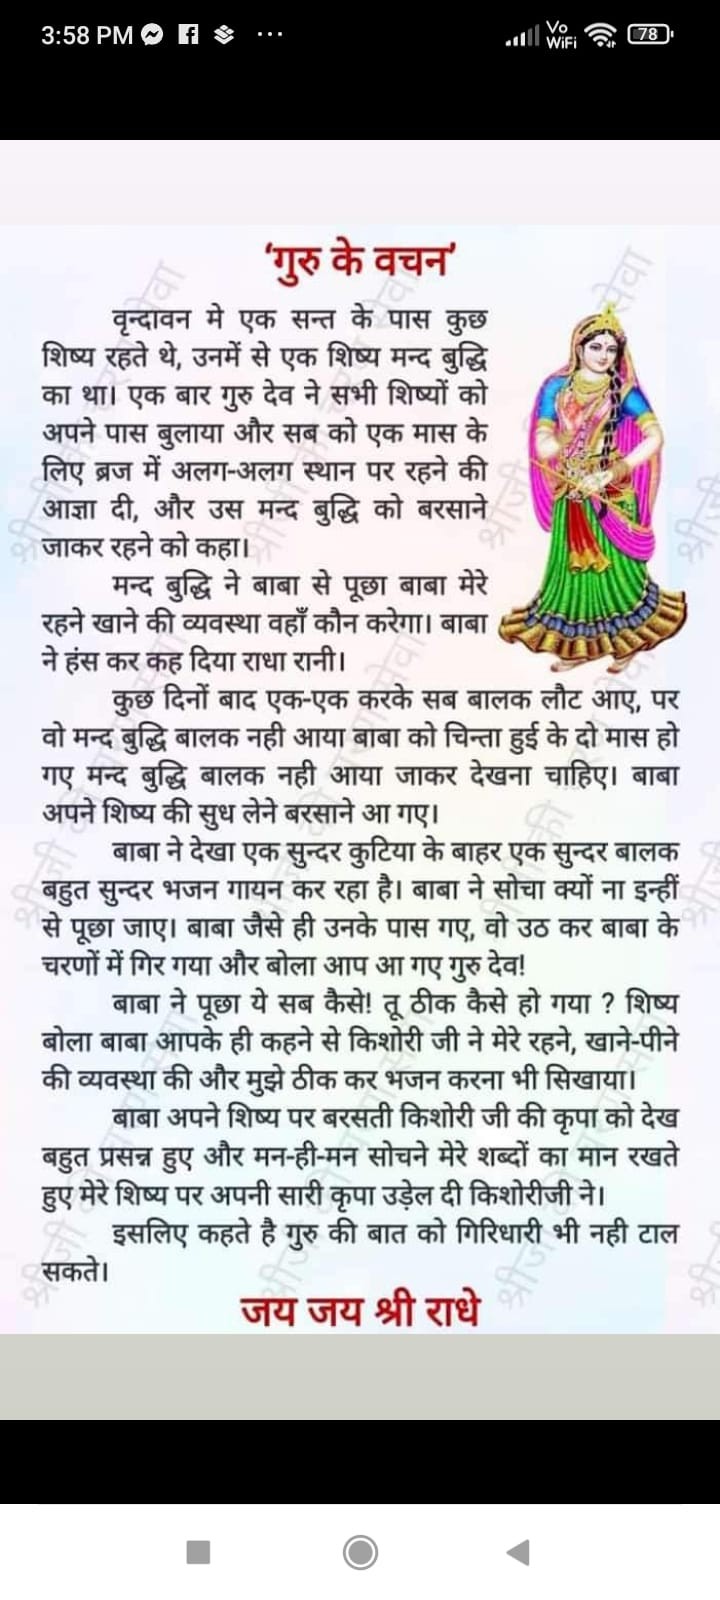 3:58 PM
Vo
WiFi
78
‘गुरु के वचन’
वृन्दावन मे एक सन्त के पास कुछ
शिष्य रहते थे, उनमें से एक शिष्य मन्द बुद्धि
का था। एक बार गुरु देव ने सभी शिष्यों को
अपने पास बुलाया और सब को एक मास के
लिए ब्रज में अलग-अलग स्थान पर रहने की
आज्ञा दी, और उस मन्द बुद्धि को बरसाने
जाकर रहने को कहा।
मन्द बुद्धि ने बाबा से पूछा बाबा मेरे
रहने खाने की व्यवस्था वहाँ कौन करेगा। बाबा
ने हंस कर कह दिया राधा रानी।
कुछ दिनों बाद एक-एक करके सब बालक लौट आए, पर
वो मन्द बुद्धि बालक नही आया बाबा को चिन्ता हुई के दो मास हो
गए मन्द बुद्धि बालक नही आया जाकर देखना चाहिए। बाबा
अपने शिष्य की सुध लेने बरसाने आ गए।
बाबा ने देखा एक सुन्दर कुटिया के बाहर एक सुन्दर बालक
बहुत सुन्दर भजन गायन कर रहा है। बाबा ने सोचा क्यों ना इन्हीं
से पूछा जाए। बाबा जैसे ही उनके पास गए, वो उठ कर बाबा के
चरणों में गिर गया और बोला आप आ गए गुरु देव!
बाबा ने पूछा ये सब कैसे! तू ठीक कैसे हो गया ? शिष्य
बोला बाबा आपके ही कहने से किशोरी जी ने मेरे रहने, खाने-पीने
की व्यवस्था की और मुझे ठीक कर भजन करना भी सिखाया।
बाबा अपने शिष्य पर बरसती किशोरी जी की कृपा को देख
बहुत प्रसन्न हुए और मन-ही-मन सोचने मेरे शब्दों का मान रखते
हुए मेरे शिष्य पर अपनी सारी कृपा उड़ेल दी किशोरीजी ने।
इसलिए कहते है गुरु की बात को गिरिधारी भी नही टाल
सकते।
जय जय श्री राधे